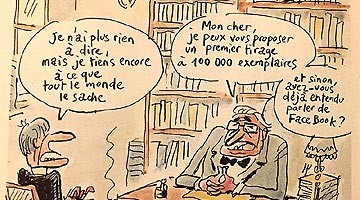 Je n'ai plus rien
à dire,
mais je tiens encore
à ce que
tout le monde
le sache
Mon cher,
je peux vous proposer
un premier tirage
à 100 000 exemplaires
et sinon,
avez-vous
déjà entendu
parler de
FaceBook ?